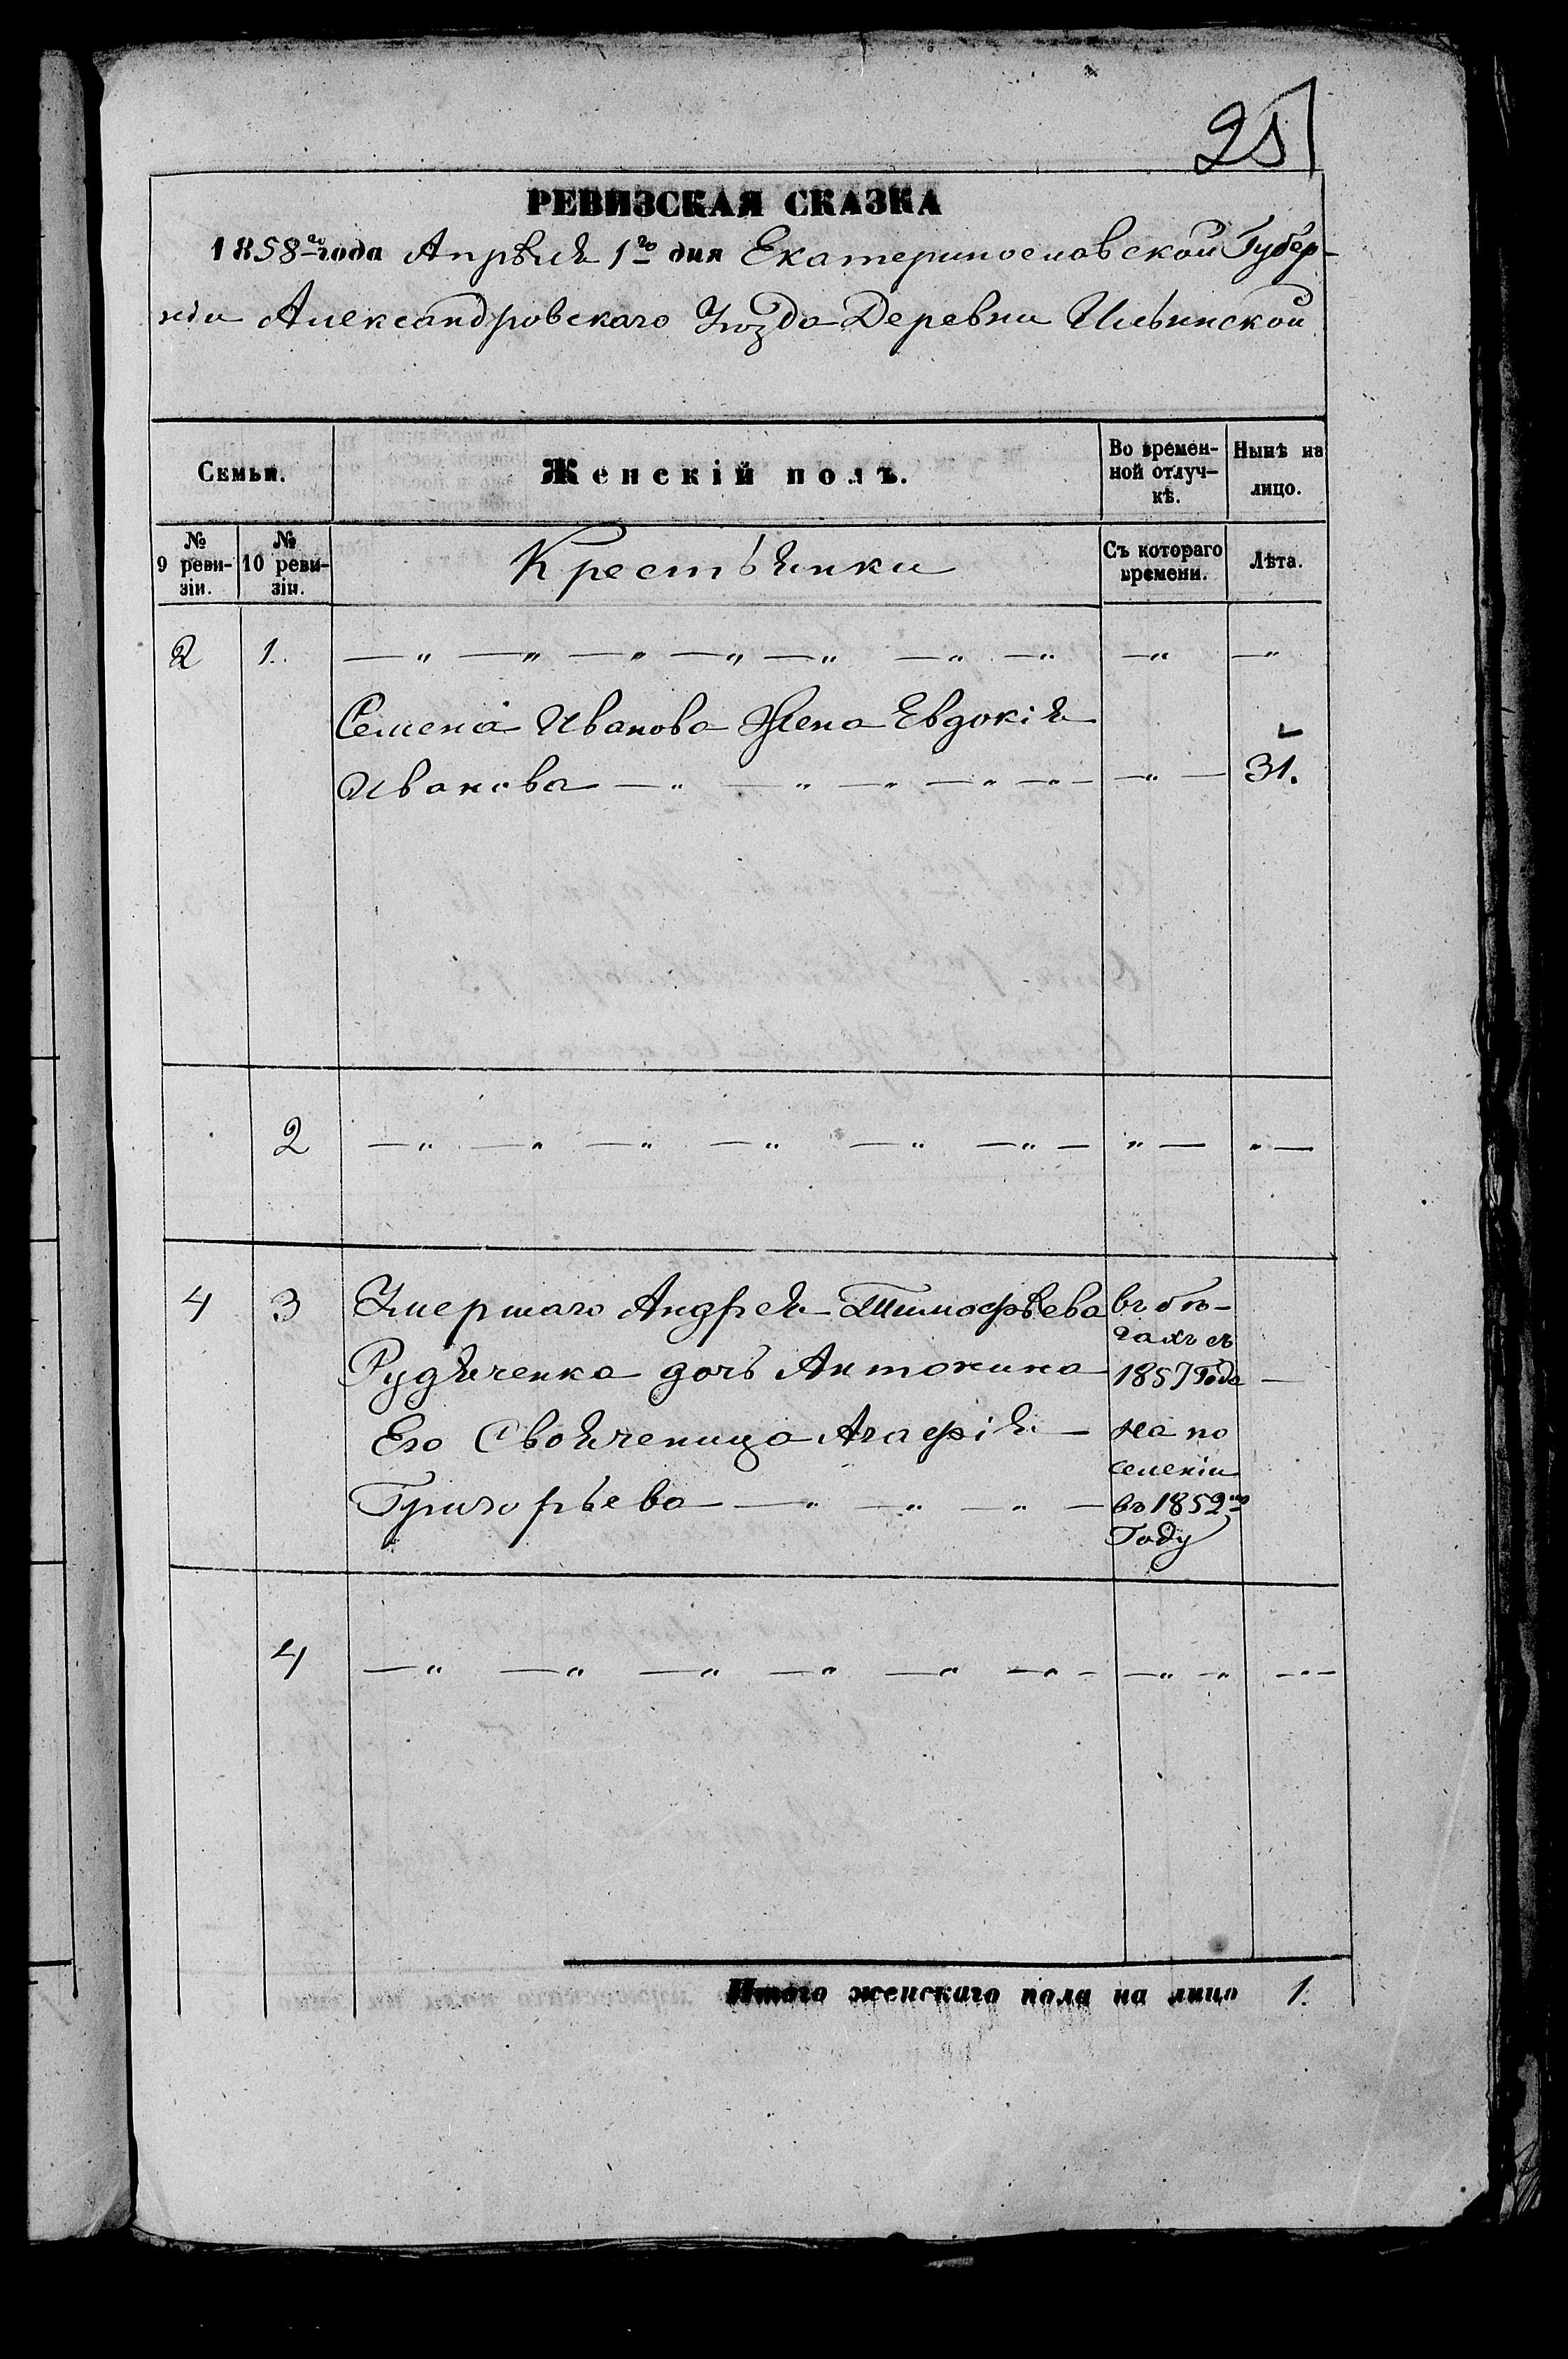 25
РЕВИЗСКАЯ СКАЗКА
1858го года Апрѣля 1го дня Екатеринославской Губер-
ніи Александровскаго Уѣзда Деревни Ильинской
Семьи.
Женскій полъ.
Во времен-
ной отлуч-
кѣ.
Нынѣ на
лицо.
№
9 реви-
зіи.
№
10 реви-
зіи.
Крестьянки
Съ котораго
времени.
Лѣта.
2 1. —„ —„ —„ —„ —„ —„ —„ —„ —„
Семена Иванова Жена Евдокія
Иванова —„ —„ —„ —„ —„— —„— 31.
2 —„ —„ —„ —„ —„ —„— „— „—
4 3 Умершаго Андрея Тимофѣева
Рудяченка дочь Антонина
въ бѣ-
гахъ съ
1857 Года —
Его Свояченица Агафія —
Григорьева —„ —„ —„ —
на по
селеніи
въ 1852мъ
Году
4 —„ —„ —„ —„ —„ —„ - —„ -„ ---
Итого женскаго пола на лицо 1.